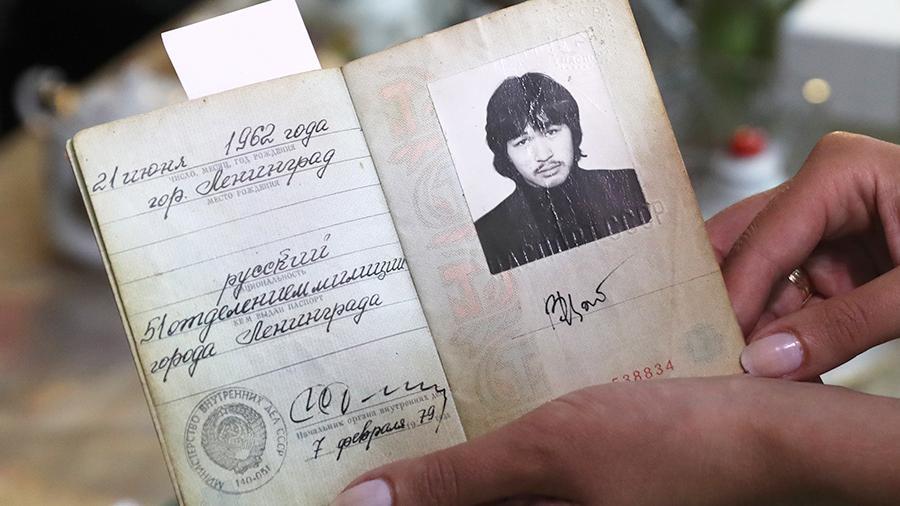 21 июня 1962 года
ЧИСЛО, МЕСЯЦ, ГОД РОЖДЕНИЯ
гор. Ленинград
МЕСТО РОЖДЕНИЯ
русский
НАЦИОНАЛЬНОСТЬ
51 отделением милиции
КЕМ ВЫДАН ПАСПОРТ
города Ленинграда
МИНИСТЕРСТВО ВНУТРЕННИХ ДЕЛ СССР
140-051
Начальник органа внутренних дел
7 февраля 1979 года
СССР
538834